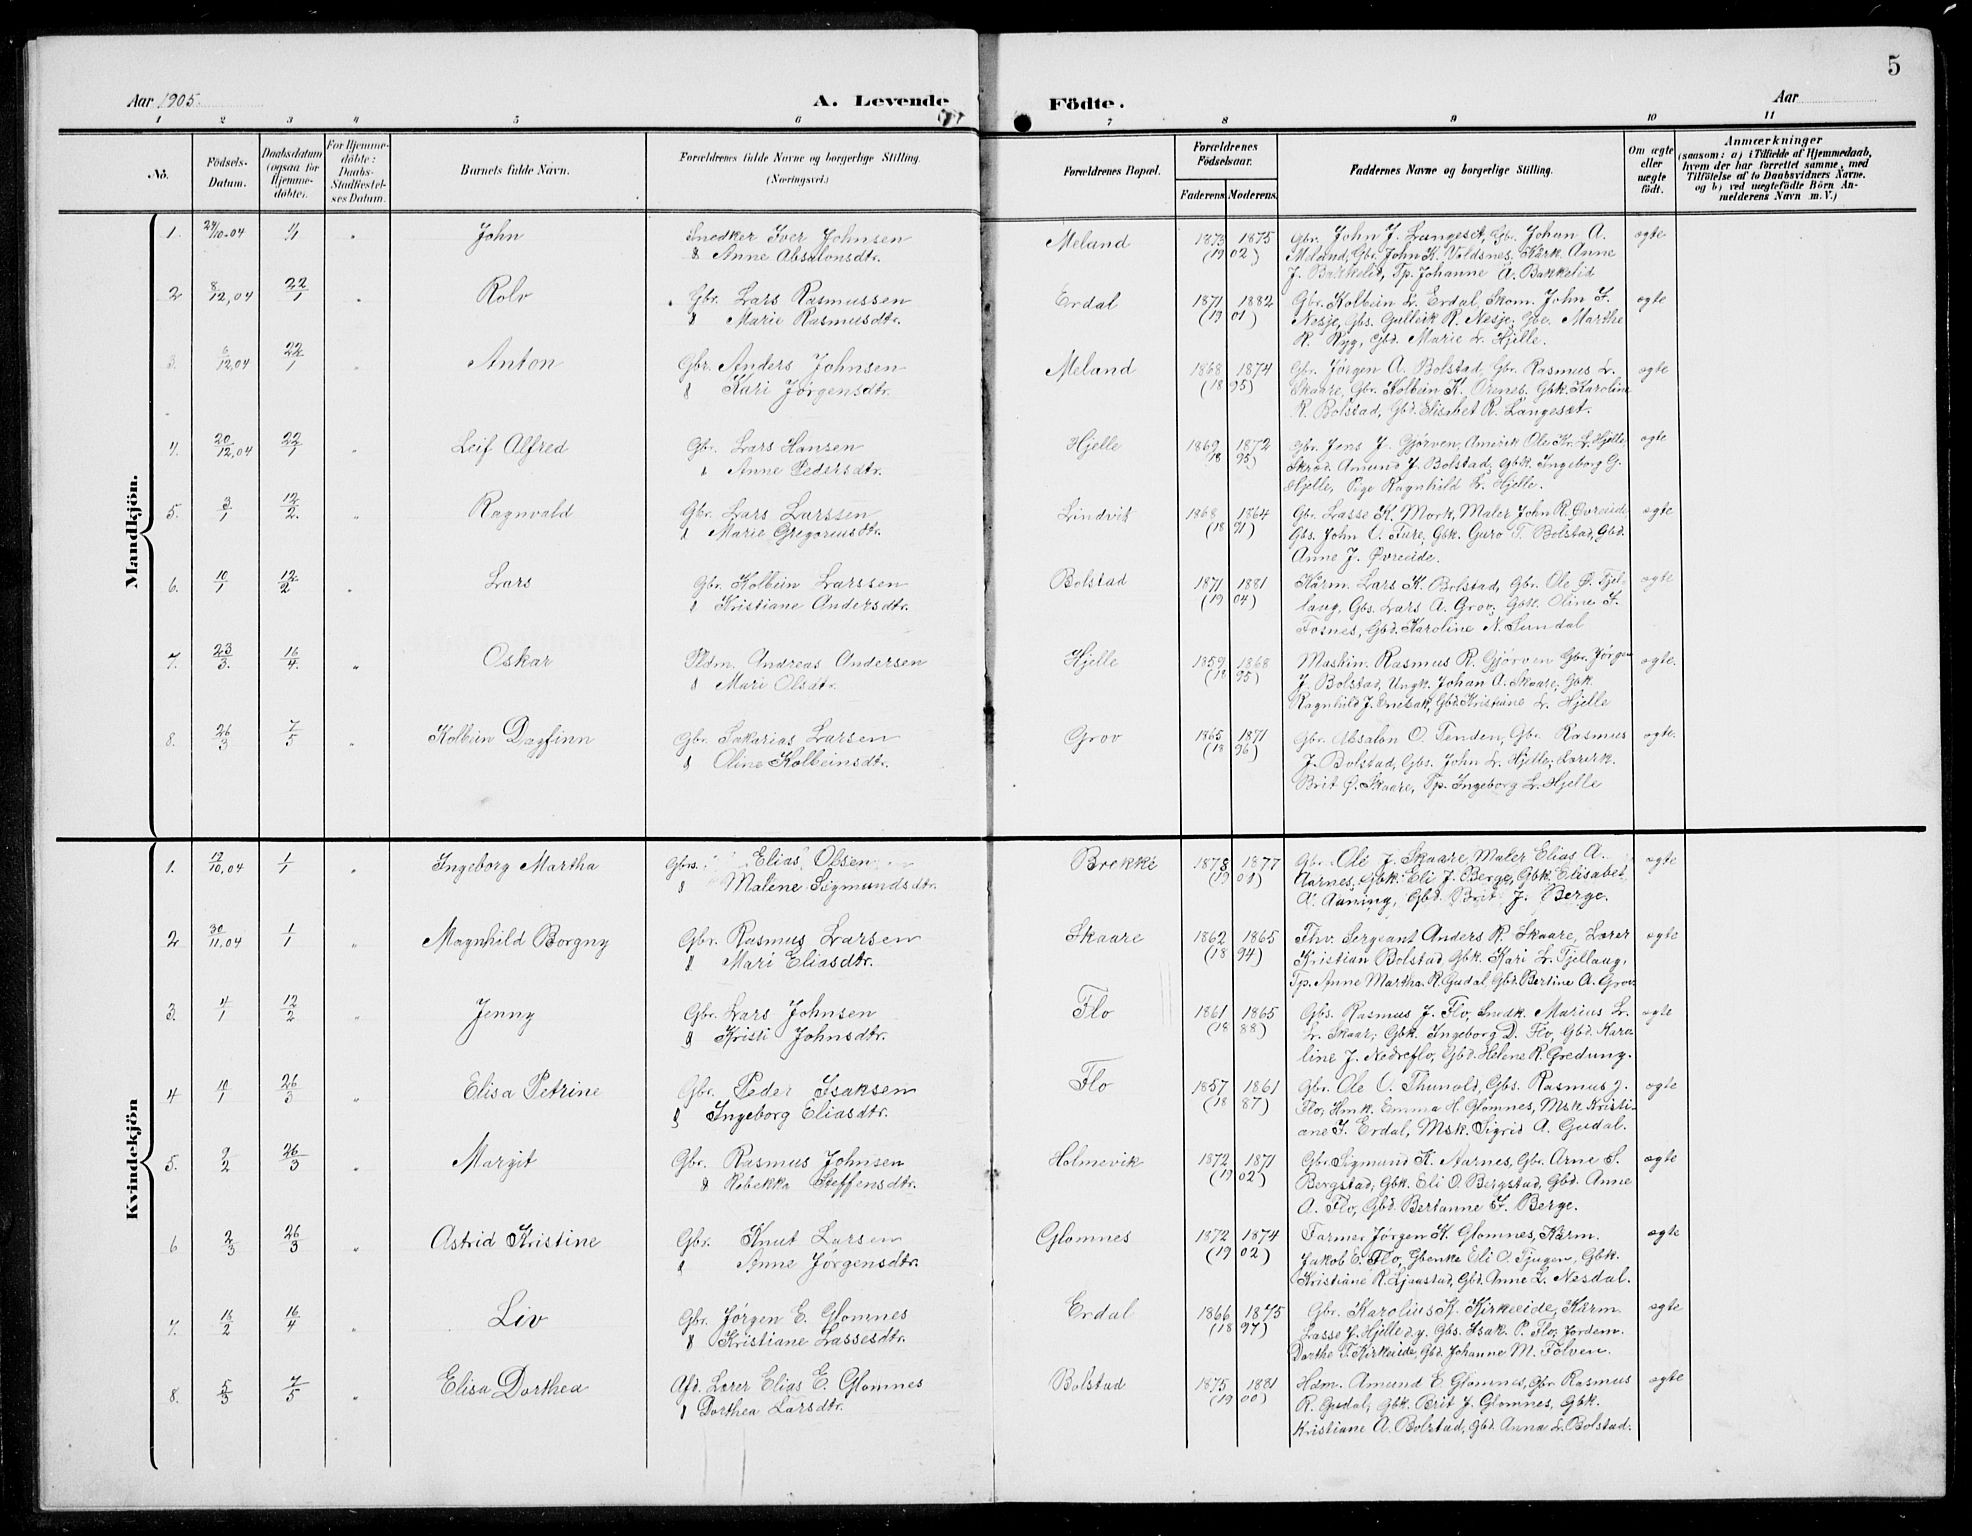 5
Aar 1905.
A. Levende
Födte.
Aar
1 2 3 4 5 6 7 8 9 10 11
No.
Födsels-Datum.
Daabsdatum (ogsaa for Hjemmedöbte).
For Hjemmedöbte: Daabs-Stadfæstelses Datum.
Barnets fulde Navn.
Forældrenes fulde Navne og borgerlige Stilling. (Næringsvei.)
Forældrenes Bopæl.
Forældrenes Födselsaar.
Faderens. Moderens.
Faddernes Navne og borgerlige Stilling.
Om ægte eller uægte födt.
Anmærkninger
(saasom: a) i Tilfælde af Hjemmedaab, hvem der har forrettet samme, med Tilföielse af to Daabsvidners Navne. og b) ved uægtefödte Börn Anmelderens Navn m. V.)
Mandkjön.
1. 24/10.04 1/1 " John Snedker Iver Johnsen Meland 1873 1875 Gbr. John J. Langeset, Gb. Johan A. ægte
" Anne Absalonsdtr. (19 02) Meland, Gbr. John K. Voldsnes, Kark. Anne
J. Bakkelid, Tp. Johanne A. Bakkelid
2 8/12.04 22/1 " Rolv Gbr. Lars Rasmussen Erdal 1871 1882 Gbr. Kolbein L. Erdal, Skom. John I. ægte
" Marie Rasmusdtr. (19 01) Nesje, Gbs. Gulleik R. Nesje, Gbe. Marthe
R. Ryg, Gbd. Marie L. Hjelle.
3. 6/12.04 22/1 " Anton Gbr. Anders Johnsen Meland 1868 1874 Gbr. Jørgen A. Bolstad, Gbr. Rasmus L. ægte
" Kari Jørgensdtr. (18 95) Skaare, Gbr. Kolbein K. Ørenes. Gbk. Karoline
R. Bolstad, Gbd. Elisabet R. Langeset.
4. 20/12.04 22/1 " Leif Alfred Gbr. Lars Hansen Hjelle 1869 1872 Gbr. Jens J. Gjørven, Amerik Ole Kr. L. Hjelle ægte
" Anne Pedersdtr. (18 95) Skræd. Amund J. Bolstad, Gbk. Ingeborg G.
Hjelle, Pige Ragnhild L. Hjelle.
5. 3/1 12/2. " Ragnvald Gbr. Lars Larssen Lindvik 1868 1864 Gbr. Lasse K. Mork, Maler John R. Øvreeide ægte
" Marie Gregoriusdtr. (18 91) Gbs. John O. Fure, Gbk. Guro T. Bolstad, Gbd.
Anne J. Øvreeide.
6. 10/1 12/2 " Lars Gbr. Kolbein Larssen Bolstad 1871 1881 Kårm. Lars K. Bolstad, Gbr. Ole Ø. Tjel- ægte
" Kristiane Andersdtr. (19 04) laug, Gbs. Lars A. Grov, Gbk. Oline I.
Fosnes, Gbd. Karoline N. Sundal
7. 23/3. 16/4. " Oskar Pldm. Andreas Andersen Hjelle 1859 1868 Maskin. Rasmus R. Gjørven Gbr. Jørgen ægte.
" Mari Olsdtr. (18 95) J. Bolstad, Ungk. Johan A. Skaare, Gbk.
Ragnhild J. Eneback, Gbd. Kristiane L. Hjelle
8. 26/3 7/5 " Kolbein Dagfinn Gbr. Sakarias Larsen Grov 1865 1871 Gbr. Absalon O. Tenden, Gbr. Rasmus ægte.
" Oline Kolbeinsdtr. (18 96) J. Bolstad, Gbs. John L. Hjelle, Lærerk.
Brit Ø. Skaare, Tp. Ingeborg L. Hjelle
Kvindekjön
1. 12/10.04 1/1 " Ingeborg Martha Gbrs. Elias Olsen Brekke 1878 1877 Gbr. Ole J. Skaare, Maler Elias A. ægte
" Malene Sigmundsdtr. (19 01) Aarnes, Gbk. Eli J. Berge, Gbk. Elisabet
A. Aaning, Gbd. Brit J. Berge.
2 30/11.04 1/1 " Magnhild Borgny Gbr. Rasmus Larsen Skaare 1862 1865 Fhv. Sergeant Anders R. Skaare, Lærer ægte
" Mari Eliasdtr. (18 94) Kristian Bolstad, Gbk. Kari L. Tjellaug,
Tp. Anne Martha R. Gudal, Gbd. Bertine A. Grov
3. 4/1 12/2 " Jenny Gbr. Lars Johnsen Flo 1861 1865 Gbs. Rasmus J. Flo, Snedk. Marius L. ægte
" Kristi Johnsdtr. (18 88) L. Skaar, Gbk. Ingeborg D. Flo, Gbd. Karo-
line J. Nedreflo, Gbd. Helene R. Gredung.
4 10/1 26/3 " Elisa Petrine Gbr. Peder Isaksen Flo 1857 1861 Gbr. Ole O. Thunold, Gbs. Rasmus J. ægte
" Ingeborg Eliasdtr. (18 87) Flo, Hmk. Emma H. Glomnes, Msk. Kristi-
ane I. Erdal, Msk. Sigrid A. Gudal.
5. 9/2 26/3 " Margit Gbr. Rasmus Johnsen Holmevik 1872 1871 Gbr. Sigmund K. Aarnes, Gbr. Arne S. ægte
" Rebekka Steffensdtr. (19 02) Bergstad, Gbk. Eli O. Bergstad, Gbd. Anne
A. Flo, Gbd. Bertanne I. Berge.
6 2/3 26/3 " Astrid Kristine Gbr. Knut Larsen Glomnes 1872 1874 Farmer Jørgen K. Glomnes, Kårm. ægte
" Anne Jørgensdtr. (19 02) Jakob E. Flo, Gbenke Eli O. Tjugen, Gbk.
Kristiane R. Ljaastad, Gbd. Anne L. Nesdal.
7. 16/2 16/4 " Liv Gbr. Jørgen E. Glomnes Erdal 1866 1875 Gbr. Karolius K. Kirkeeide, Kårm. ægte
" Kristiane Lassesdtr. (18 97) Lasse J. Hjelle d.y. Gbs. Isak P. Flo, Jordem.
Dorthe T. Kirkeeide, Gbd. Johanne M. Folven.
8. 5/3 7/5 " Elisa Dorthea Afd. Lærer Elias E. Glomnes Bolstad 1875 1881 Hdm. Amund E. Glomnes, Gbr. Rasmus ægte
" Dorthea Larsdtr. (19 00) R. Gudal, Gbk. Brit J. Glomnes, Gbk.
Kristiane A. Bolstad, Gbd. Anna L. Bolstad.